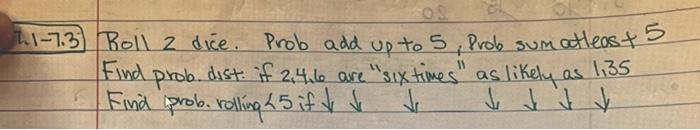 7.1-7.3 Roll 2 dice. Prob add up to 5, Prob sum atleast 5
Find prob. dist. if 2,4,6 are "six times" as likely as 1,3,5
Find prob. rolling <5 if ↓ ↓ ↓ ↓ ↓ ↓ ↓